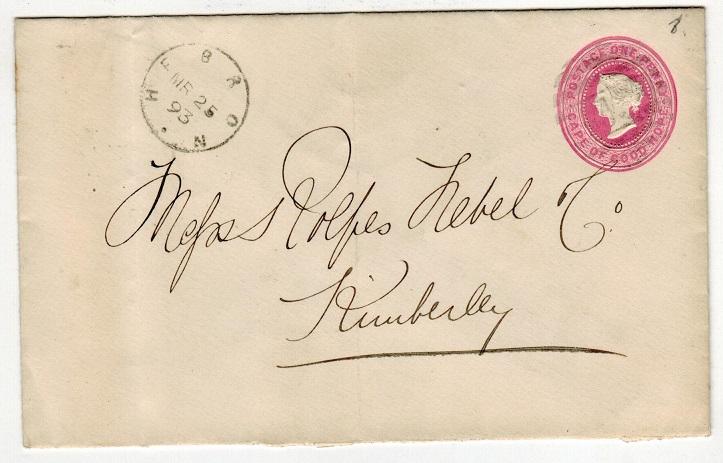 HEBRON
MR 25
93
POSTAGE ONE PENNY
CAPE OF GOOD HOPE
Messrs Rolfes Nebel & Co.
Kimberley